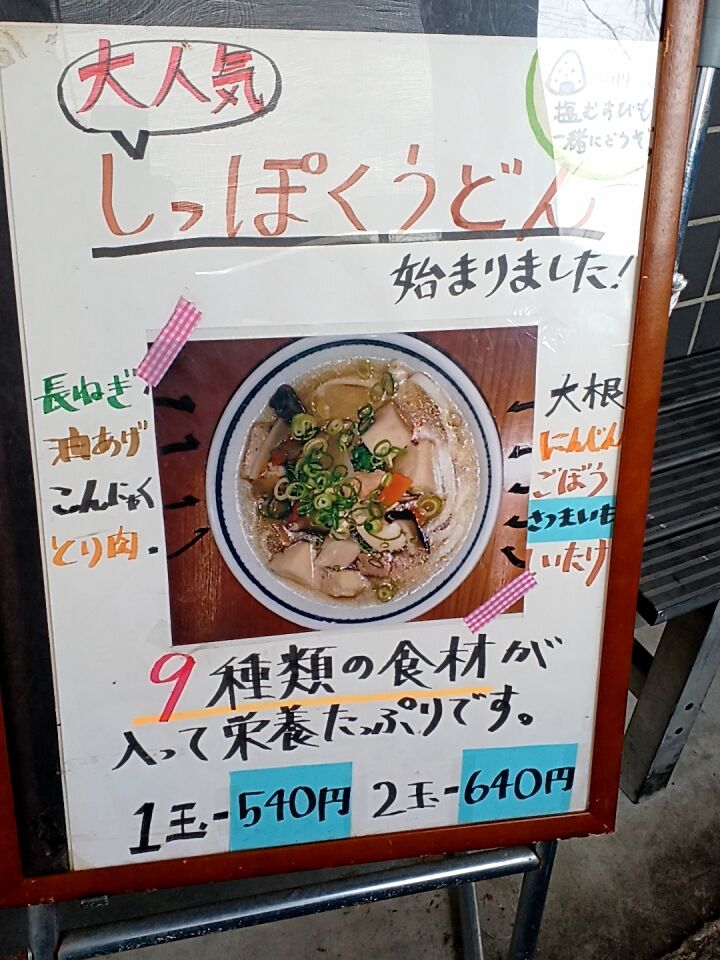 大人気
塩むすびも
一緒にどうぞ
しっぽくうどん
始まりました!
長ねぎ
油あげ
こんにゃく
とり肉
大根
にんじん
ごぼう
さつまいも
しいたけ
9種類の食材が
入って栄養たっぷりです。
1玉-540円 2玉-640円